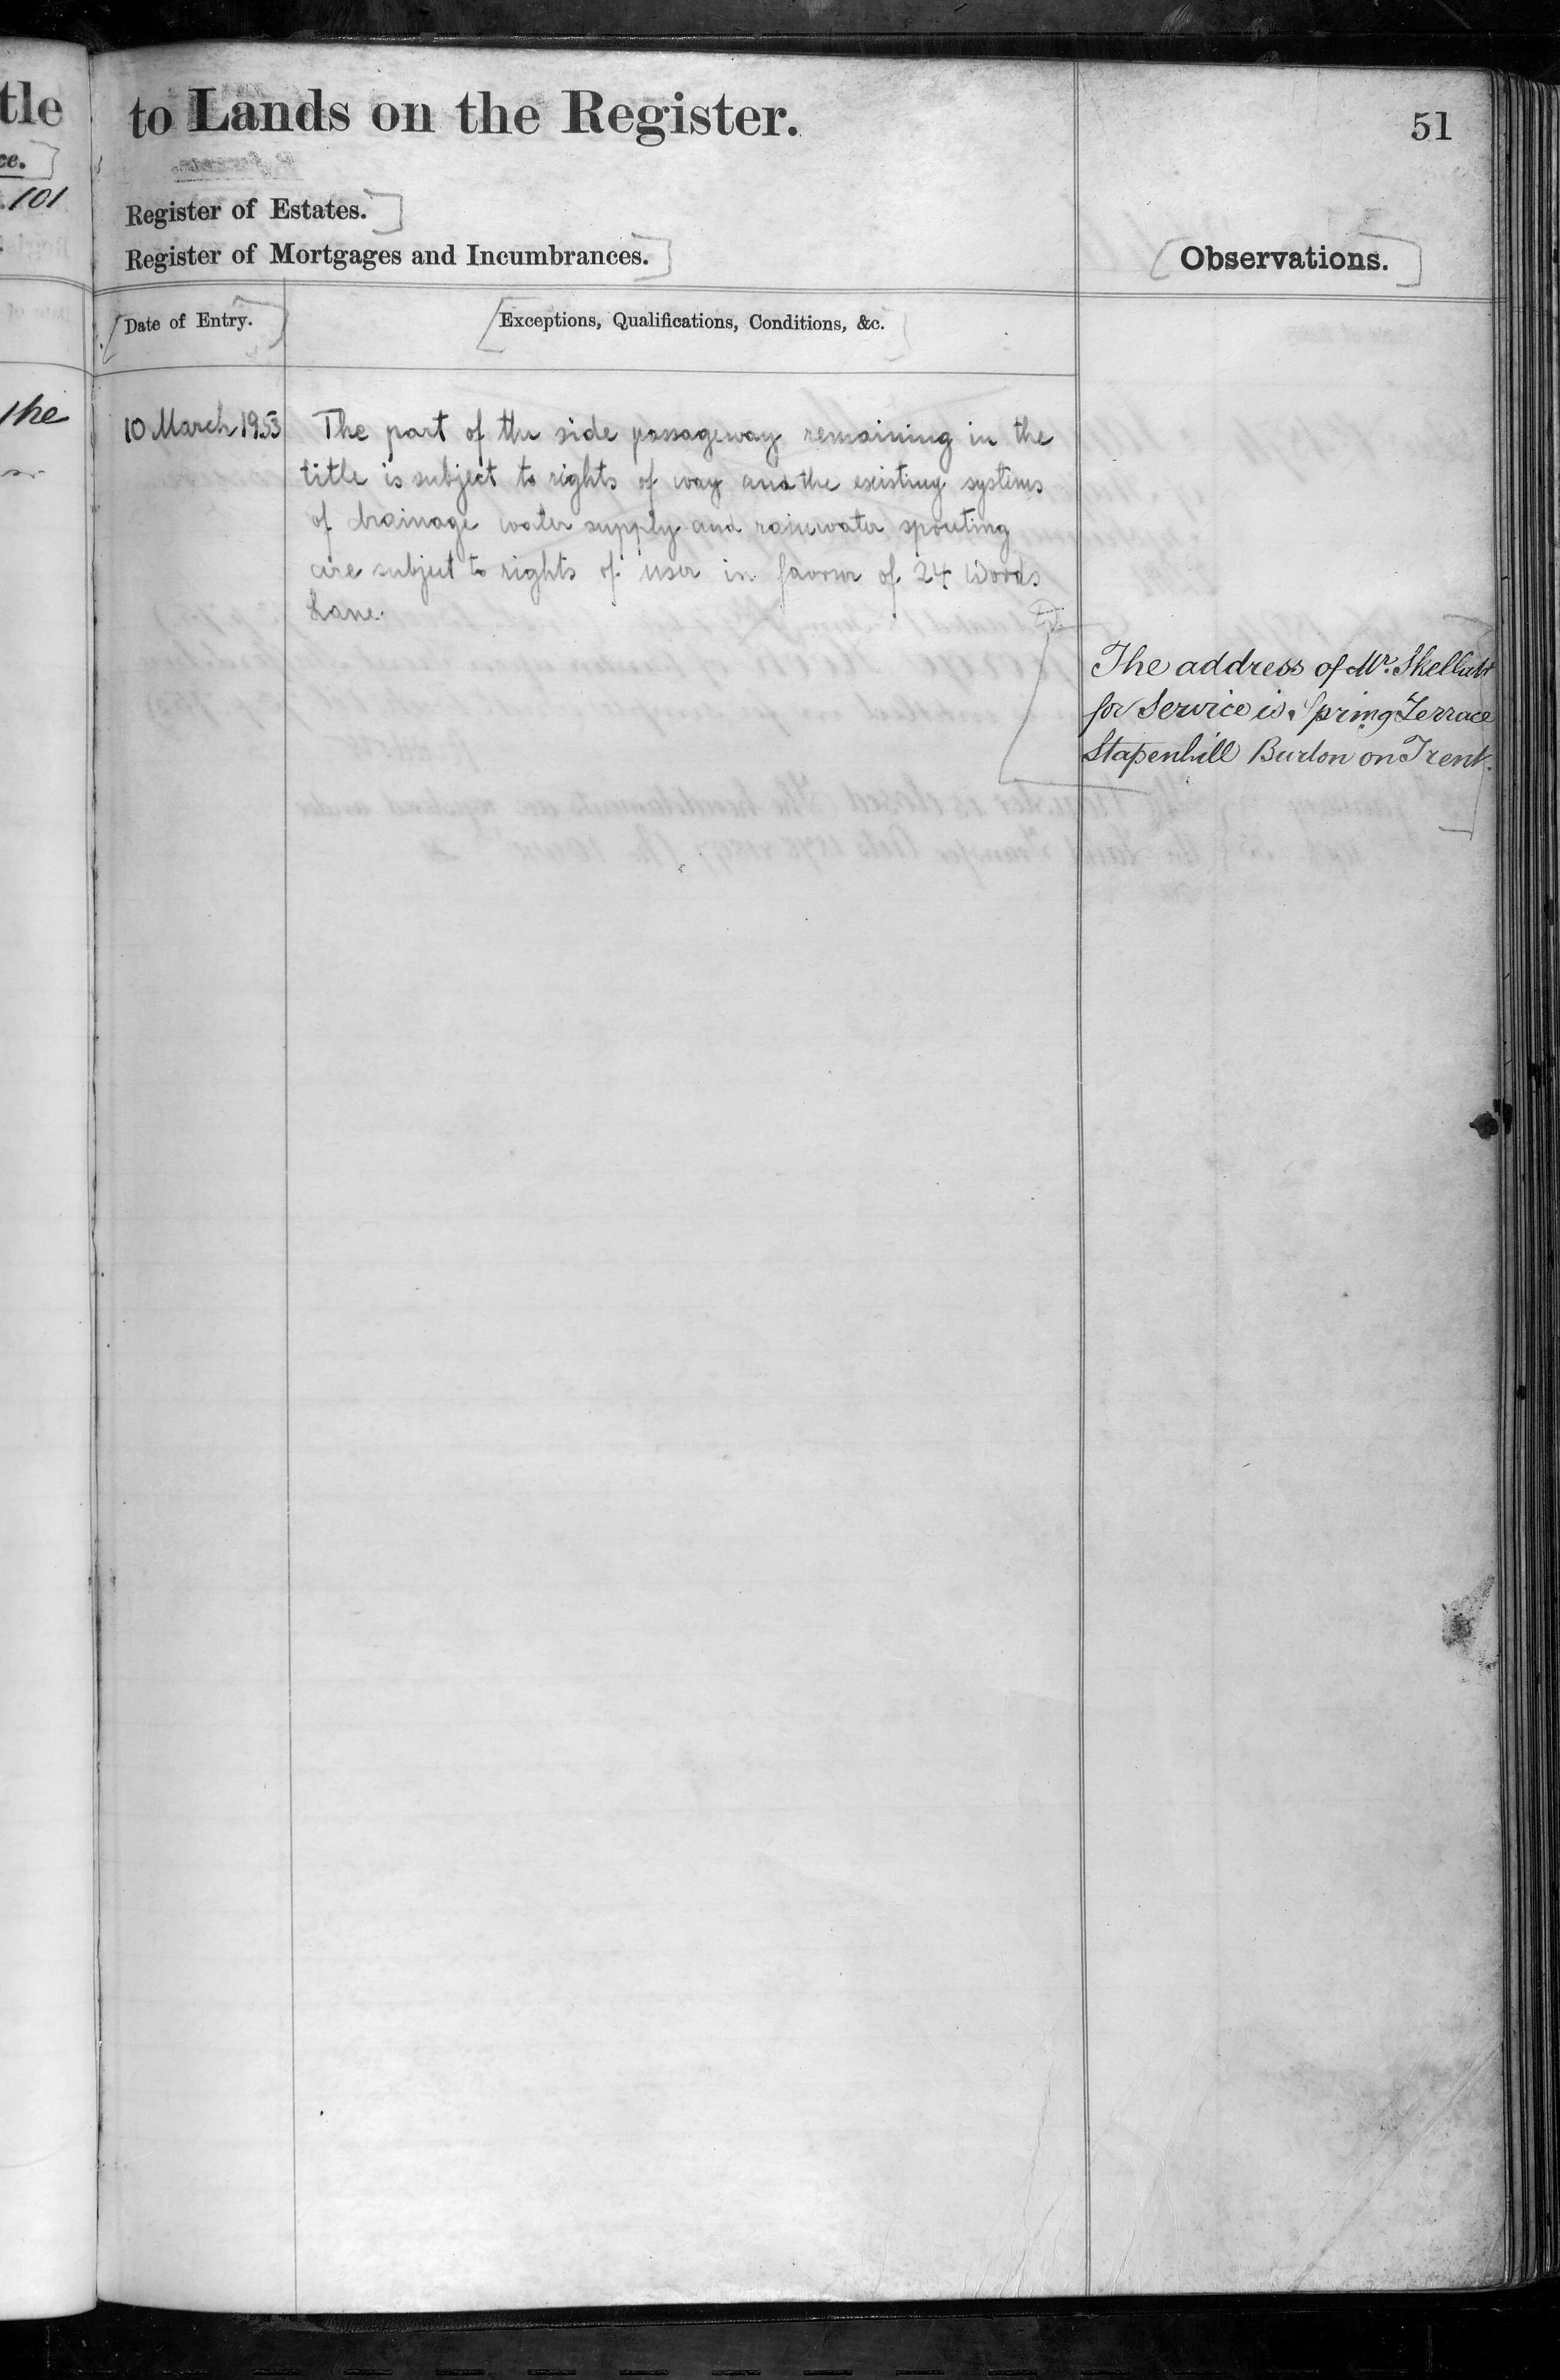 tle
to Lands on the Register.
51
ce.
101
Register of Estates.
Register of Mortgages and Incumbrances.
Observations.
Date of Entry.
Exceptions, Qualifications, Conditions, &c.
the
10 March 1953
The part of the side passageway remaining in the
title is subject to rights of way and the existing systems
of drainage water supply and rainwater spouting
are subject to rights of user in favour of 24 Woods
Lane.
The address of Mr. Skellett
for Service is Spring Terrace
Stapenhill Burton on Trent.